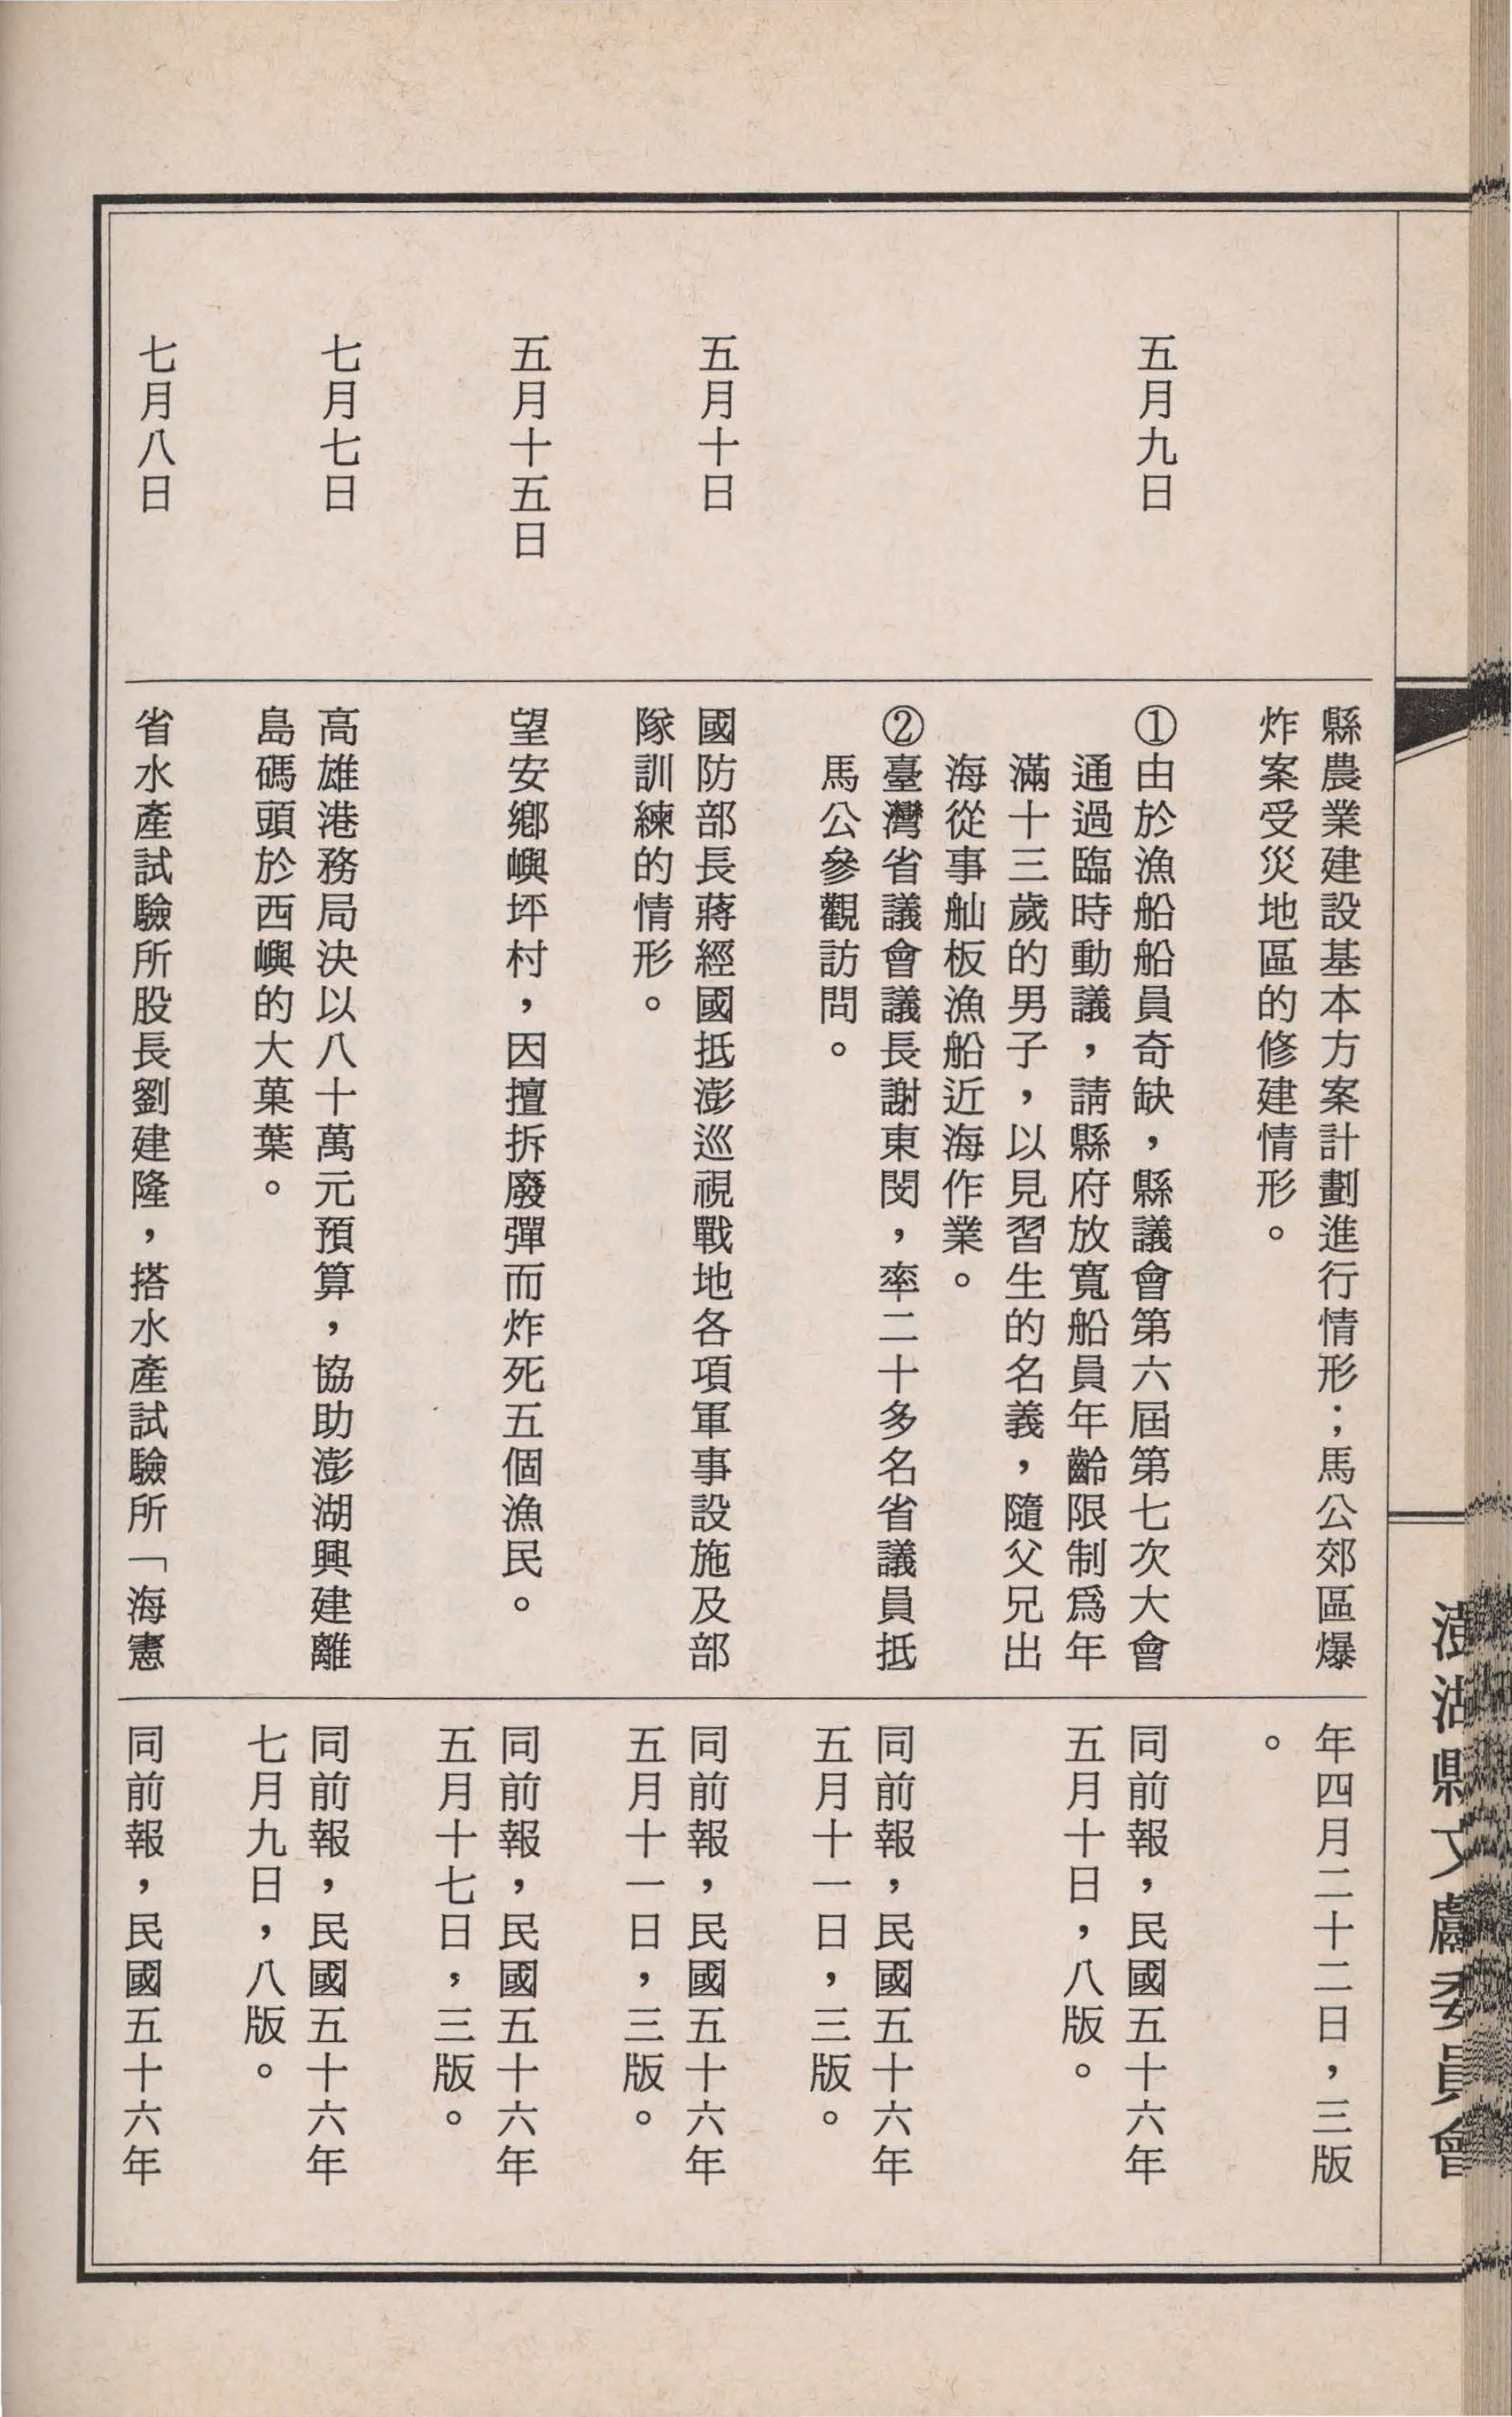 澎湖縣文獻委員會
縣農業建設基本方案計劃進行情形；馬公郊區爆
炸案受災地區的修建情形。
年四月二十二日，三版
。
五月九日
①由於漁船船員奇缺，縣議會第六屆第七次大會
通過臨時動議，請縣府放寬船員年齡限制爲年
滿十三歲的男子，以見習生的名義，隨父兄出
海從事舢板漁船近海作業。
同前報，民國五十六年
五月十日，八版。
②臺灣省議會議長謝東閔，率二十多名省議員抵
馬公參觀訪問。
同前報，民國五十六年
五月十一日，三版。
五月十日
國防部長蔣經國抵澎巡視戰地各項軍事設施及部
隊訓練的情形。
同前報，民國五十六年
五月十一日，三版。
五月十五日
望安鄉嶼坪村，因擅拆廢彈而炸死五個漁民。
同前報，民國五十六年
五月十七日，三版。
七月七日
高雄港務局決以八十萬元預算，協助澎湖興建離
島碼頭於西嶼的大菓葉。
同前報，民國五十六年
七月九日，八版。
七月八日
省水產試驗所股長劉建隆，搭水產試驗所「海憲
同前報，民國五十六年